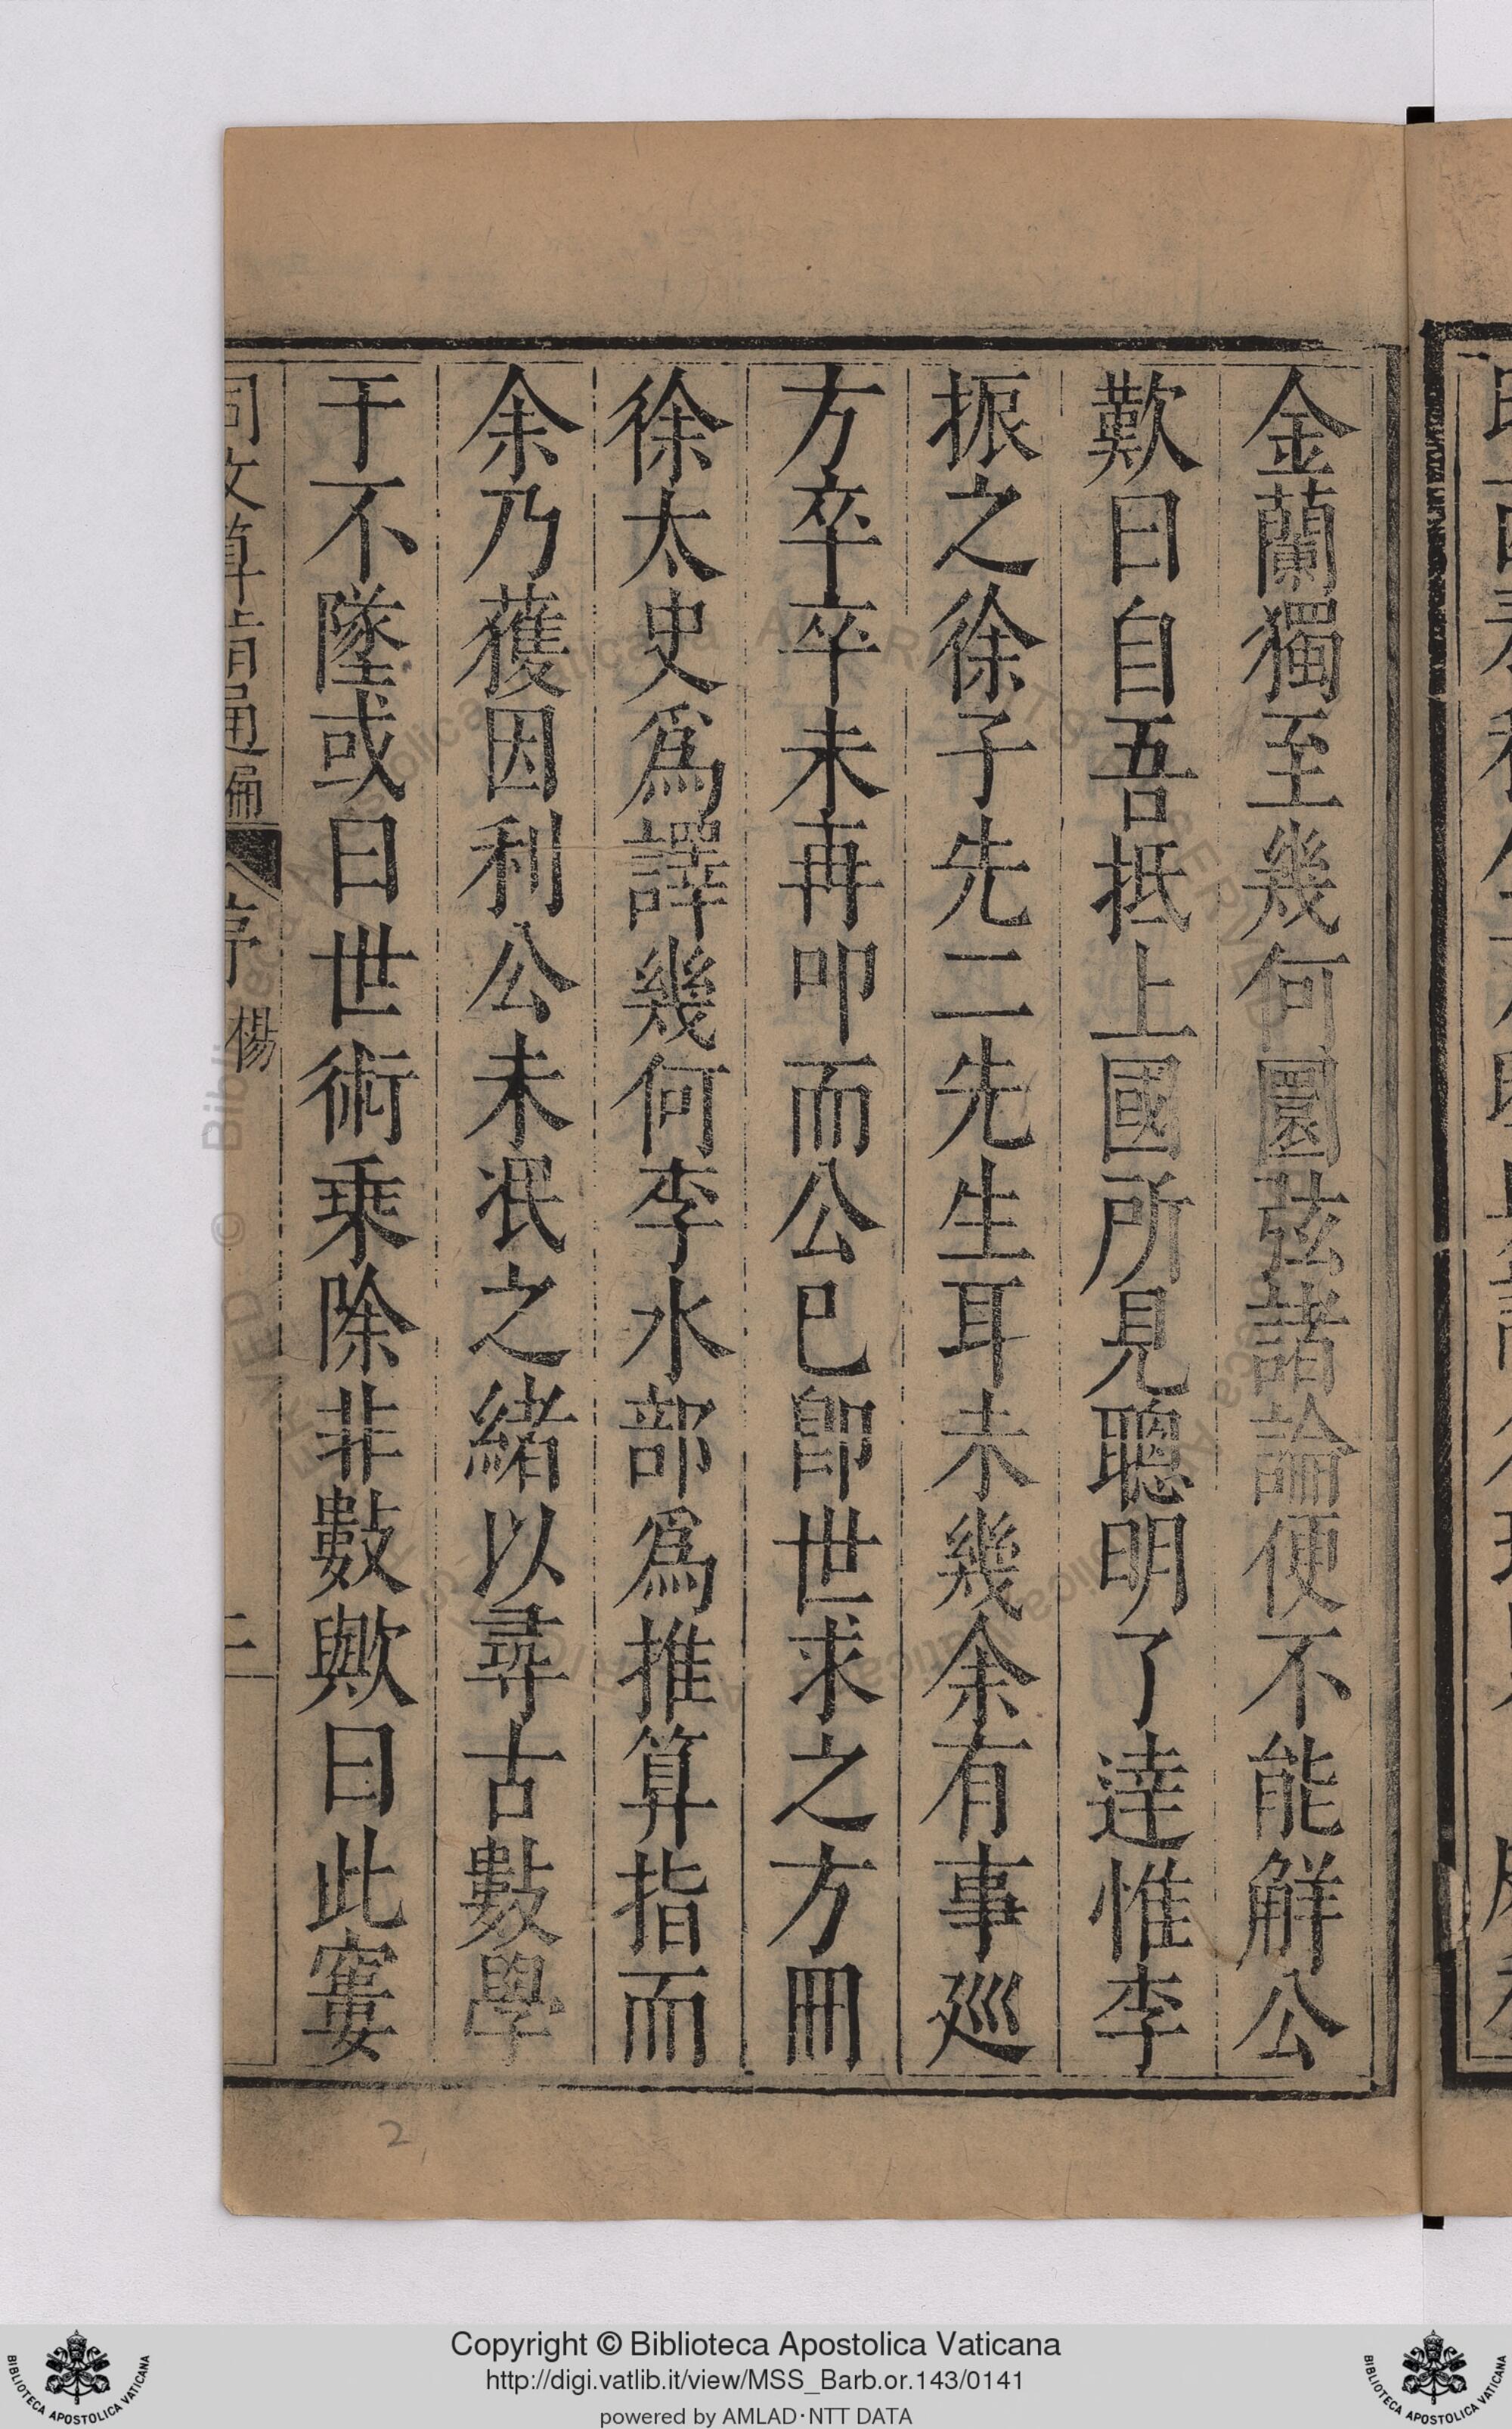 金蘭獨至幾何圜弦諸論便不能解公
歎曰自吾抵上國所見聰明了達惟李
振之徐子先二先生耳未幾余有事巡
方卒卒未再叩而公已卽世求之方冊
徐太史爲譯幾何李水部爲推算指而
余乃獲因利公未泯之緒以尋古數學
于不墜或曰世術乘除非數歟曰此寠
同文算指通編 序 楊 三
Copyright © Biblioteca Apostolica Vaticana
http://digi.vatlib.it/view/MSS_Barb.or.143/0141
powered by AMLAD·NTT DATA
BIBLIOTECA APOSTOLICA VATICANA
BIBLIOTECA APOSTOLICA VATICANA
2